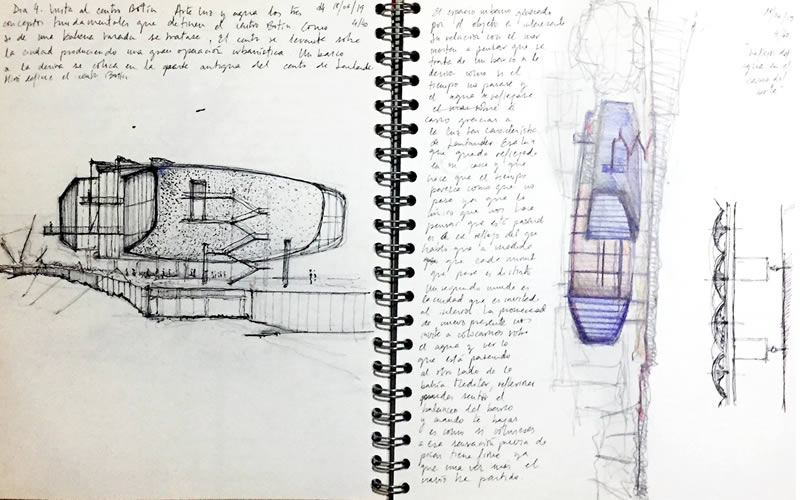 Dia 4. Visita al centro Botín Arte luz y agua los tres
conceptos fundamentales que definen el centro Botín Como
si de una ballena varada se tratase, El centro se levanta sobre
la ciudad produciendo una gran operación urbanística Un barco
a la deriva se coloca en la parte antigua del centro de Santander
define el centro Botín
18/06/19
4/60
El espacio urbano generado
por el objeto e interesante
Su relación con el mar
pensar que se
trata de un barco a la
deriva como si el
tiempo no pasase y
el agua reflejase
el
casco gracias a
la luz tan característica
de Santander Esa luz
que queda reflejada
en su casco y que
hace que el tiempo
parezca como que no
pasa ya que lo
único que nos hace
pensar que está pasando
es el reflejo del que
a medida
que cada
que pasa es distinto
Un segundo mundo es
la ciudad que es invitada
al interior La promenade
de nuevo presente nos
invita a colocarnos sobre
el agua y ver lo
que está pasando
al otro lado de la
bahía Meditar, reflexionar
puedes sentir el
balanceo del barco
y cuando te bajas
es como si volvieses
a esa sensación previa de
pisar tierra firme ya
que una vez más el
navío ha partido
18/06/19
4/60
Reflejo del
agua en el
casco del